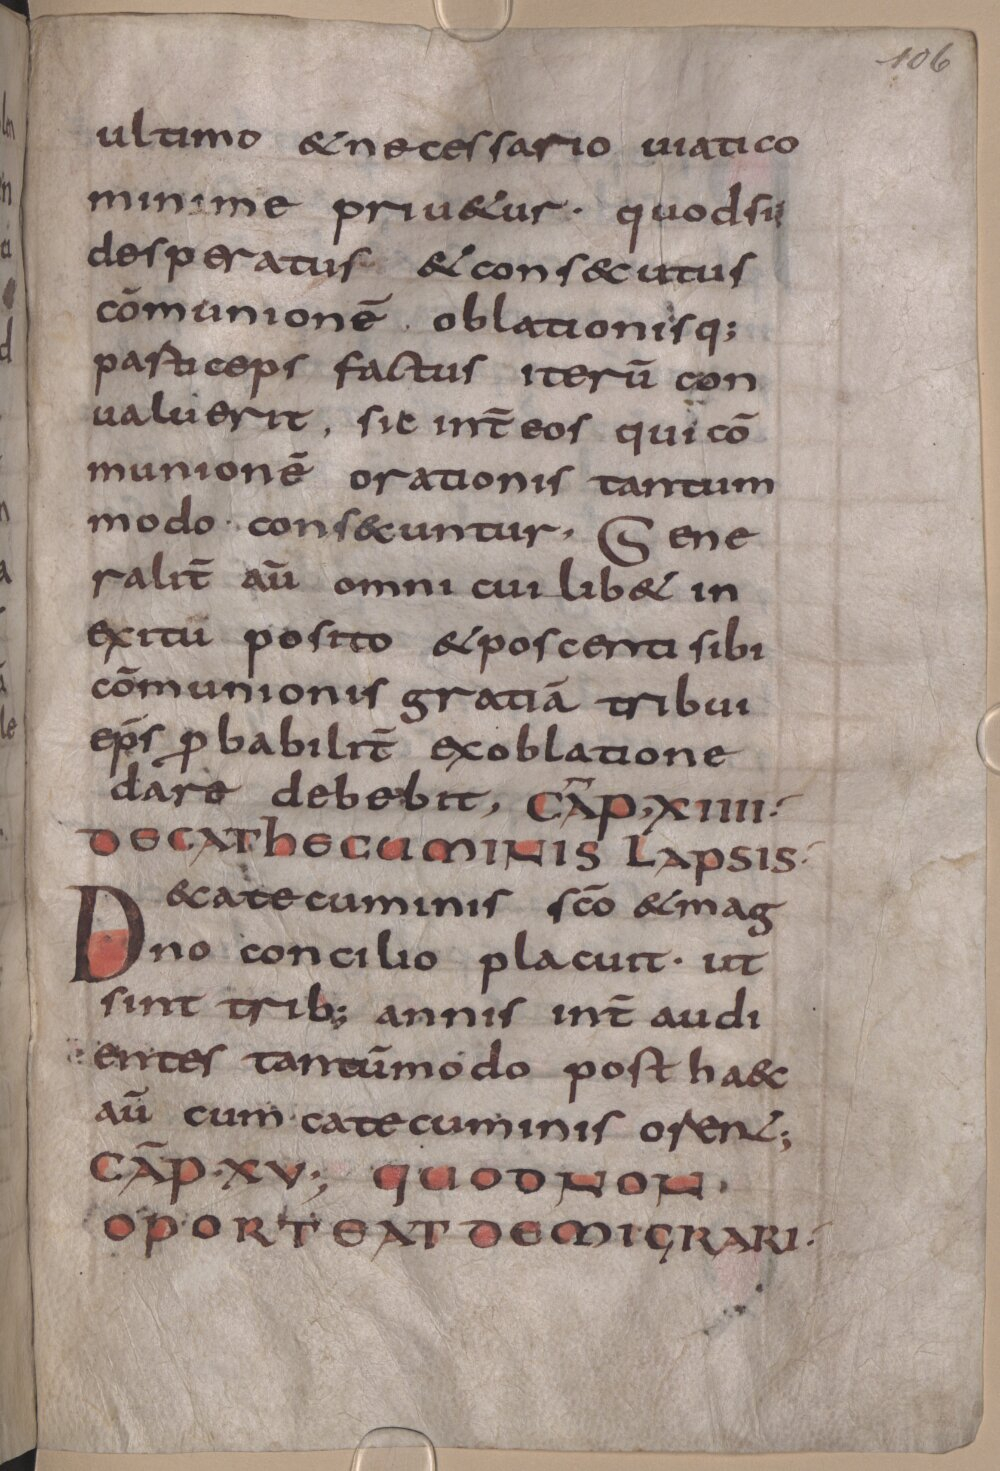 106
ultimo & necessario uiatico
minime priu&ur· quodsi
desperatus & cons&cutus
cōmunionē oblationisq;
particeps factus iterū con
ualuerit, sit int̄ eos qui cō
munionē orationis tantum
modo cons&cuntur, Gene
ralit̄ aū omni cuilib& in
exitu posito & poscenti sibi
cōmunionis gratiā tribui
ep̄s ꝓbabilit̄ ex oblatione
dare debebit, CĀP·XIIII·
DE CATHECUMINIS LAPSIS·
D&catecuminis sc̄o & mag
no concilio placuit· ut
sint trib; annis int̄ audi
entes tantūmodo post ha&c
aū cum catecuminis oren&;
CĀP·XV; QUOD NON·
OPORTEAT DEMIGRARI·